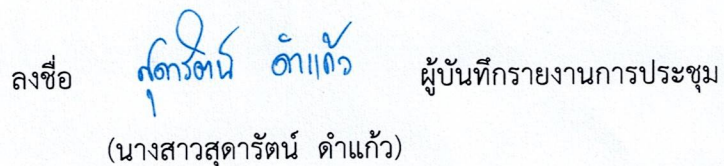 ลงชื่อ สุดารัตน์ ดำแก้ว ผู้บันทึกรายงานการประชุม
(นางสาวสุดารัตน์ ดำแก้ว)